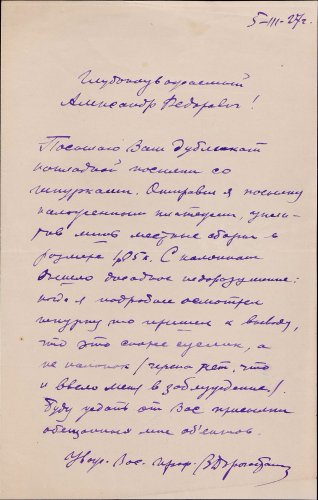 5-III-27г.
Глубокоуважаемый
Александр Федорович!
Посылаю Вам дубликат
накладной посылки со
шкурками. Отправил я посылку
наложенным платежом, уплатив
лишь местные сборы в
размере 1,05к. С
вышло досадное недоразумение:
когда я подробнее осмотрел
шкурку то пришел к выводу,
что это скорее суслик, а
не (черна рет, что
и ввело меня в заблуждение).
Буду ждать от Вас присылки
обещанных мне об'ектов.
Уваж. Вас проф.